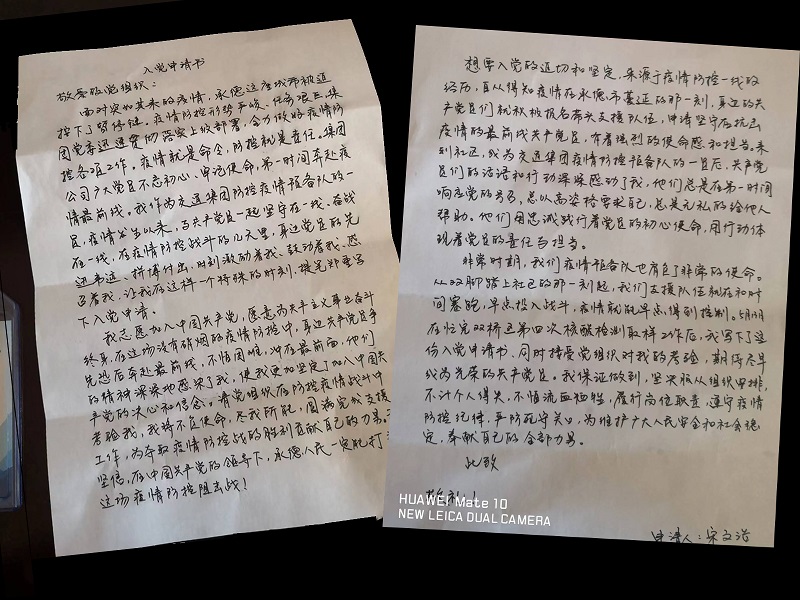 入党申请书
敬爱的党组织：
面对突如其来的疫情，承德这座城市被迫
按下了暂停键。疫情防控形势严峻、任务艰巨，集
团党委迅速贯彻落实上级部署，全力做好疫情防
控各项工作。疫情就是命令，防控就是责任。集团
公司广大党员不忘初心、牢记使命，第一时间奔赴疫
情最前线。我作为交通集团防控疫情预备队的一
员，疫情发生以来，与共产党员一起坚守在一线、奋战
在一线，在疫情防控战斗的几天里，身边党员的先
进事迹、拼搏付出，时刻激励着我、鼓动着我、感
写着我，让我在这样一个特殊的时刻，提笔郑重写
下入党申请。
我志愿加入中国共产党，愿意为共产主义事业奋斗
终身。在这场没有硝烟的疫情防控中，身边共产党员争
先恐后奔赴最前线，不惧困难，冲在最前面，他们
的精神深深地感染了我，使我更加坚定了加入中国共
产党的决心和信念。请党组织在防控疫情战斗中
考验我，我将不负使命、尽我所能，圆满完成支援
工作，为夺取疫情防控战的胜利贡献自己的力量。
坚信，在中国共产党的领导下，承德人民一定能打
这场疫情防控阻击战！
想要入党的迫切和坚定，来源于疫情防控一线的
经历，自从得知疫情在承德市蔓延的那一刻，身边的共
产党员们就积极报名带头支援队伍，申请坚守在抗击
疫情的最前线共产党员，有着强烈的使命感和担当。来
到社区，成为交通集团疫情防控预备队的一员后，共产党
员们的话语和行动深深感动了我，他们总是在第一时间
响应党的号召，总以高姿格要求自己，总是无私的给他人
帮助。他们用忠诚践行着党员的初心使命，用行动体
现着党员的责任与担当。
非常时期，我们疫情预备队也肩负了非常的使命。
从双脚踏上社区的那一刻起，我们支援队伍就在和时
间赛跑，早点投入战斗，疫情就能早点得到控制。明明
在忙完双桥区第四次核酸检测取样工作后，我写下了这
份入党申请书、同时接受党组织对我的考验，期待尽早
成为光荣的共产党员。我保证做到，坚决服从组织安排，
不计个人得失，不惜流血牺牲，履行岗位职责，遵守疫情
防控纪律，严防死守关口，为维护广大人民安全和社会稳
定，奉献自己的全部力量。
此致
敬礼！
申请人：宋文浩
HUAWEI Mate 10
NEW LEICA DUAL CAMERA